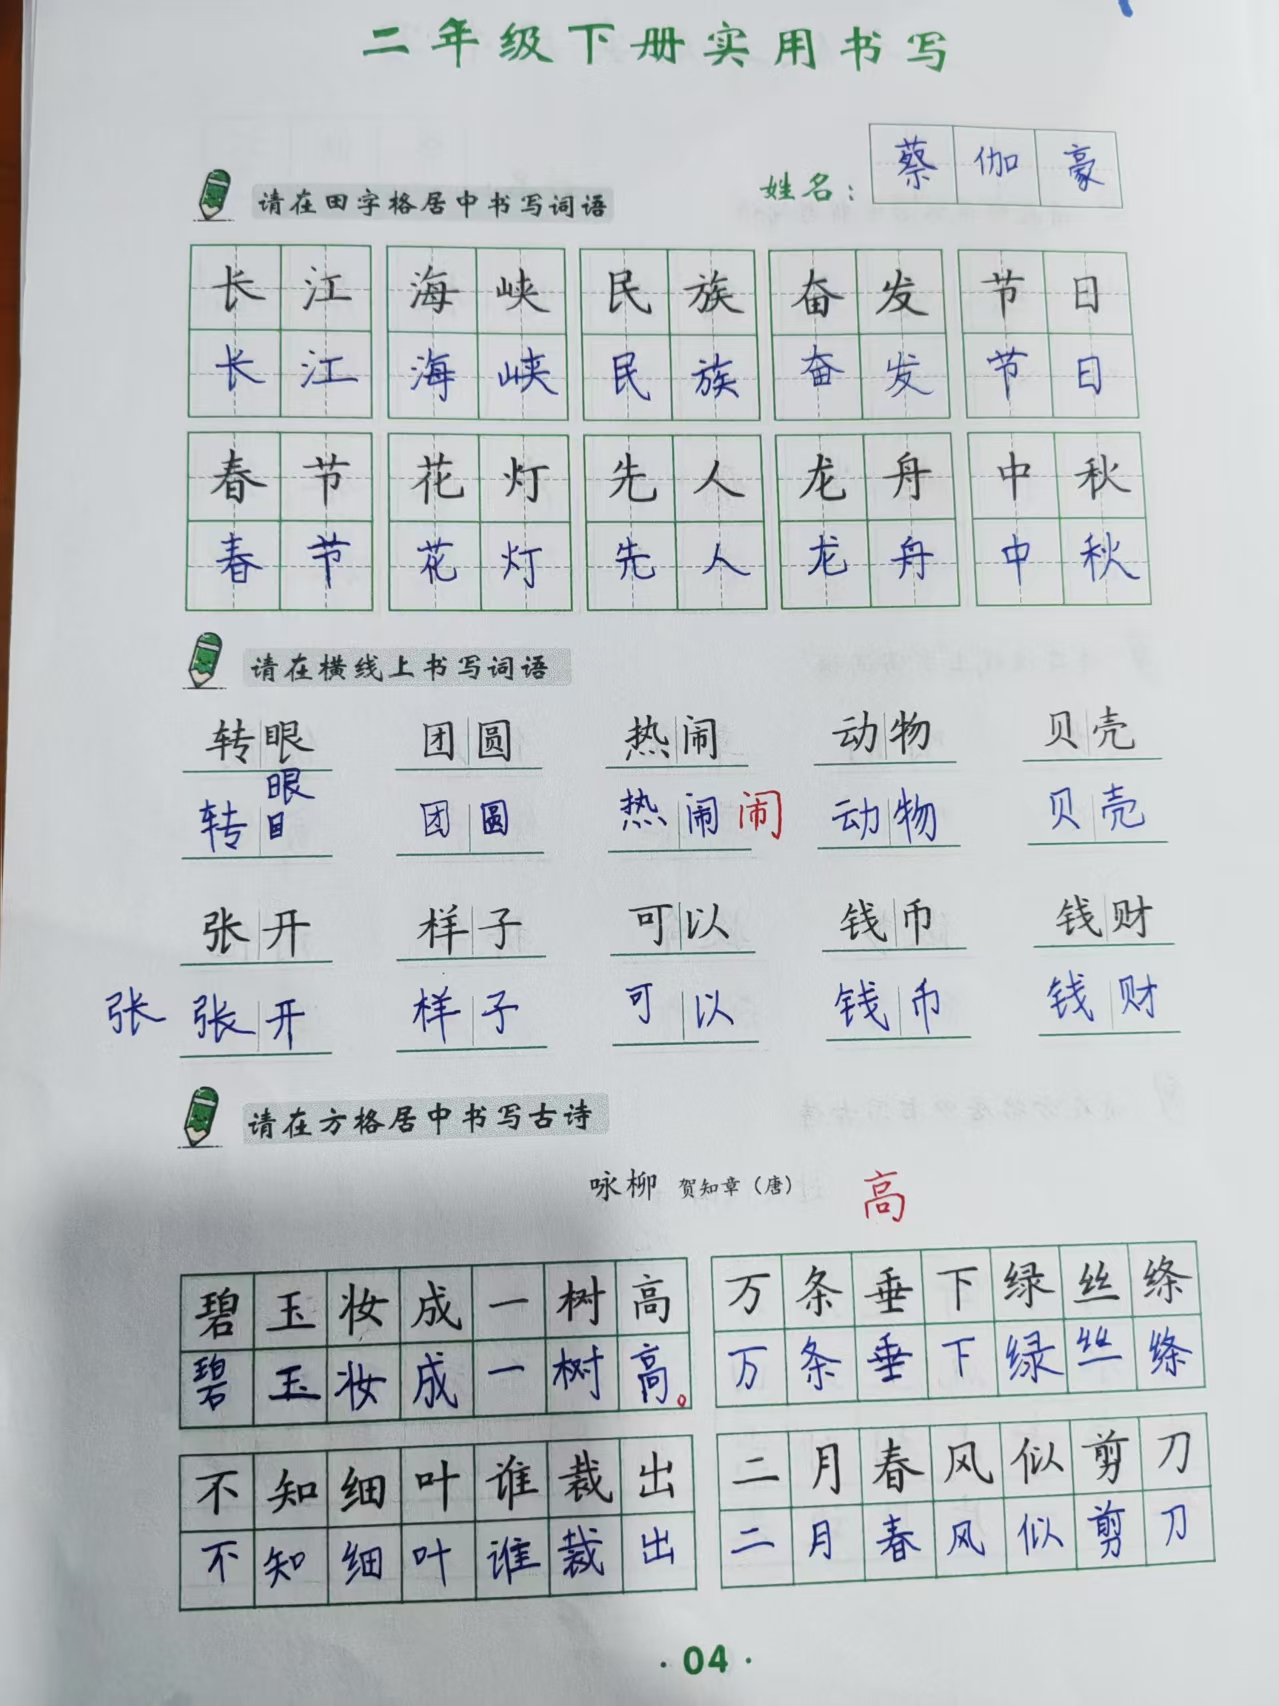 二年级下册实用书写
姓名：蔡伽豪
请在田字格居中书写词语
长江 海峡 民族 奋发 节日
长江 海峡 民族 奋发 节日
春节 花灯 先人 龙舟 中秋
春节 花灯 先人 龙舟 中秋
请在横线上书写词语
转眼 团圆 热闹 动物 贝壳
眼
转目 团圆 热闹 闹 动物 贝壳
张开 样子 可以 钱币 钱财
张 张开 样子 可以 钱币 钱财
请在方格居中书写古诗
咏柳 贺知章（唐） 高
碧玉妆成一树高 万条垂下绿丝绦
碧玉妆成一树高。 万条垂下绿丝绦
不知细叶谁裁出 二月春风似剪刀
不知细叶谁裁出 二月春风似剪刀
·04·